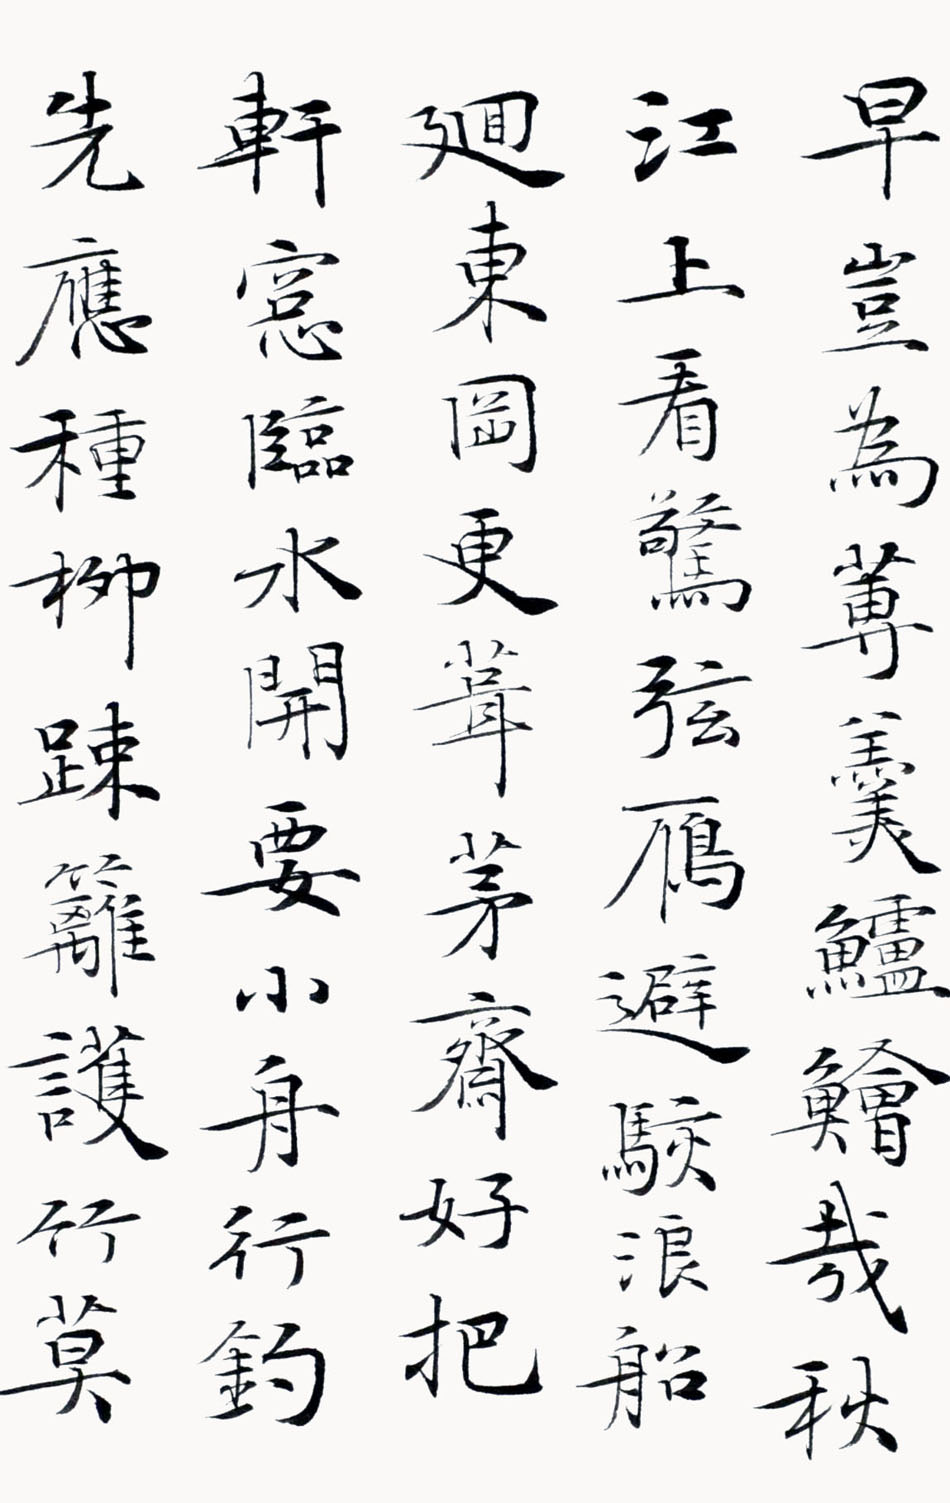 早豈為蓴羹鱸鱠哉秋
江上看驚弦雁避駭浪船
迴東岡更葺茅齋好把
軒窓臨水開要小舟行釣
先應種柳疎籬護竹莫